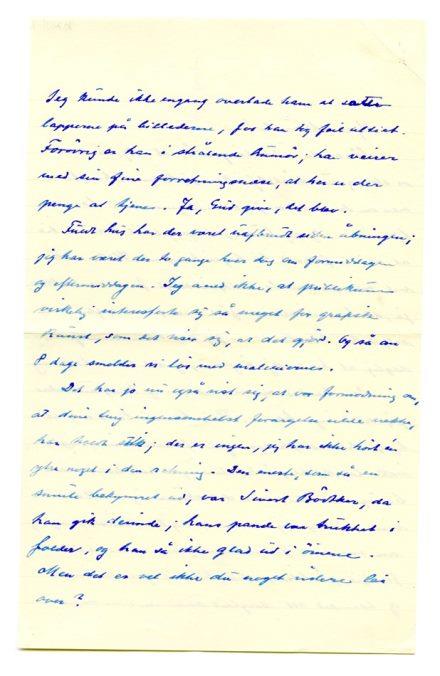 Jeg kunde ikke engang overlade ham at sætte
lapperne på billederne, for han tog feil altid.
Forøvrig er han i strålende humør; han veirer
med sin fine forretningsnese, at her er der
penge at tjene. Ja, Gud give, det blev.
Fuldt hus har der været uafbrudt siden åbningen;
jeg har været der to gange hver dag om formiddagen
og eftermiddagen. Jeg aned ikke, at publikum
virkelig interesserte sig så meget for grafisk
kunst, som det viser sig, at det gjør. Og så om
8 dage smelder vi løs med malerierne.
Det har jo nu også vist sig, at vor formodning om,
at dine ting ingensomhelst forargelse vilde vekke,
har holdt stik; der er ingen, jeg har ikke hørt én
ytre noget i den retning. Den eneste, som så en
smule bekymret ud, var Sivert Bödtker, da
han gik derinde; hans pande var trukket i
folder, og han så ikke glad ud i öinene.
Men det er vel ikke du noget videre lei
over?